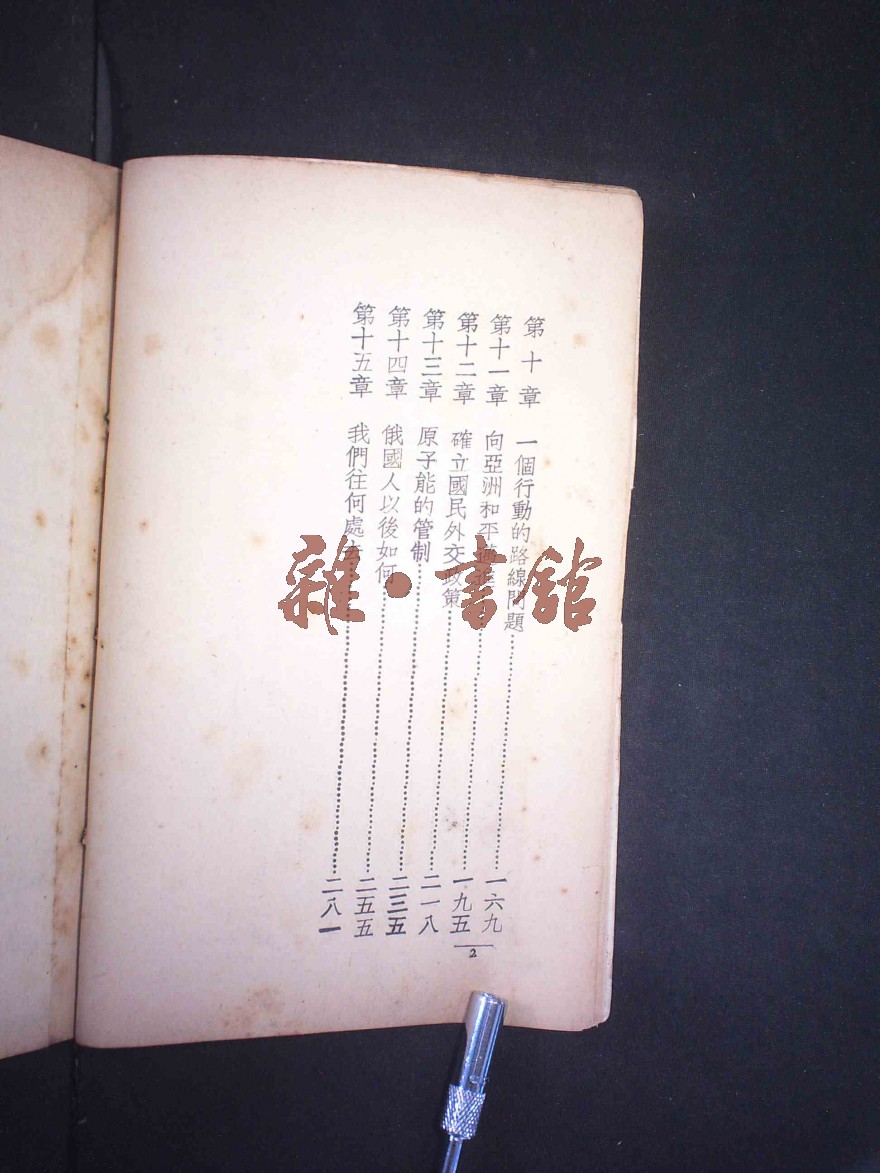 第十章 一個行動的路線問題 一六九
第十一章 向亞洲和平邁進 一九五
第十二章 確立國民外交政策 二一八
第十三章 原子能的管制 二三五
第十四章 俄國人以後如何 二五五
第十五章 我們往何處去 二八一
2
雜·書館